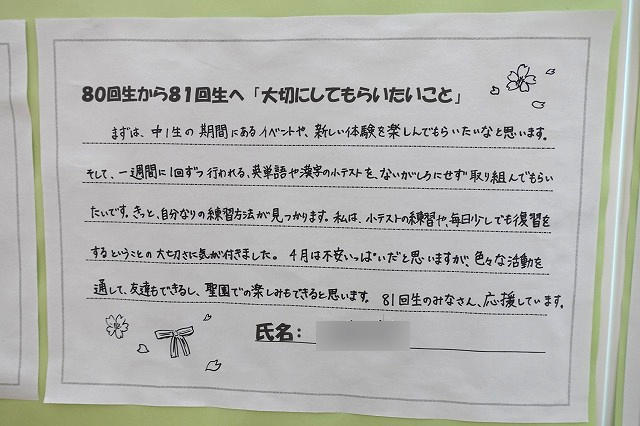 80回生から81回生へ「大切にしてもらいたいこと」
まずは、中1生の期間にあるイベントや、新しい体験を楽しんでもらいたいなと思います。
そして、一週間に1回ずつ行われる、英単語や漢字の小テストを、ないがしろにせず取り組んでもらい
たいです。きっと、自分なりの練習方法が見つかります。私は、小テストの練習や、毎日少しでも復習を
するということの大切さに気が付きました。4月は不安いっぱいだと思いますが、色々な活動を
通して、友達もできるし、聖園での楽しみもできると思います。81回生のみなさん、応援しています。
氏名: